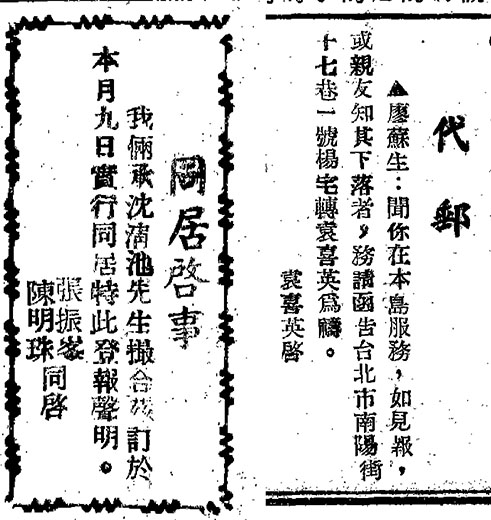 代郵
▲廖蘇生：聞你在本島服務，如見報，
或親友知其下落者，務請函告台北市南陽街
十七巷一號楊宅轉袁喜英爲禱。
袁喜英啓
同居啓事
我倆承沈清池先生撮合茲訂於
本月九日實行同居特此登報聲明。
張振峯
陳明珠
同啓